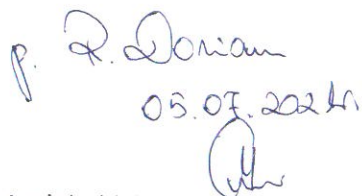 p. R. Dorian
05.07.2024r.